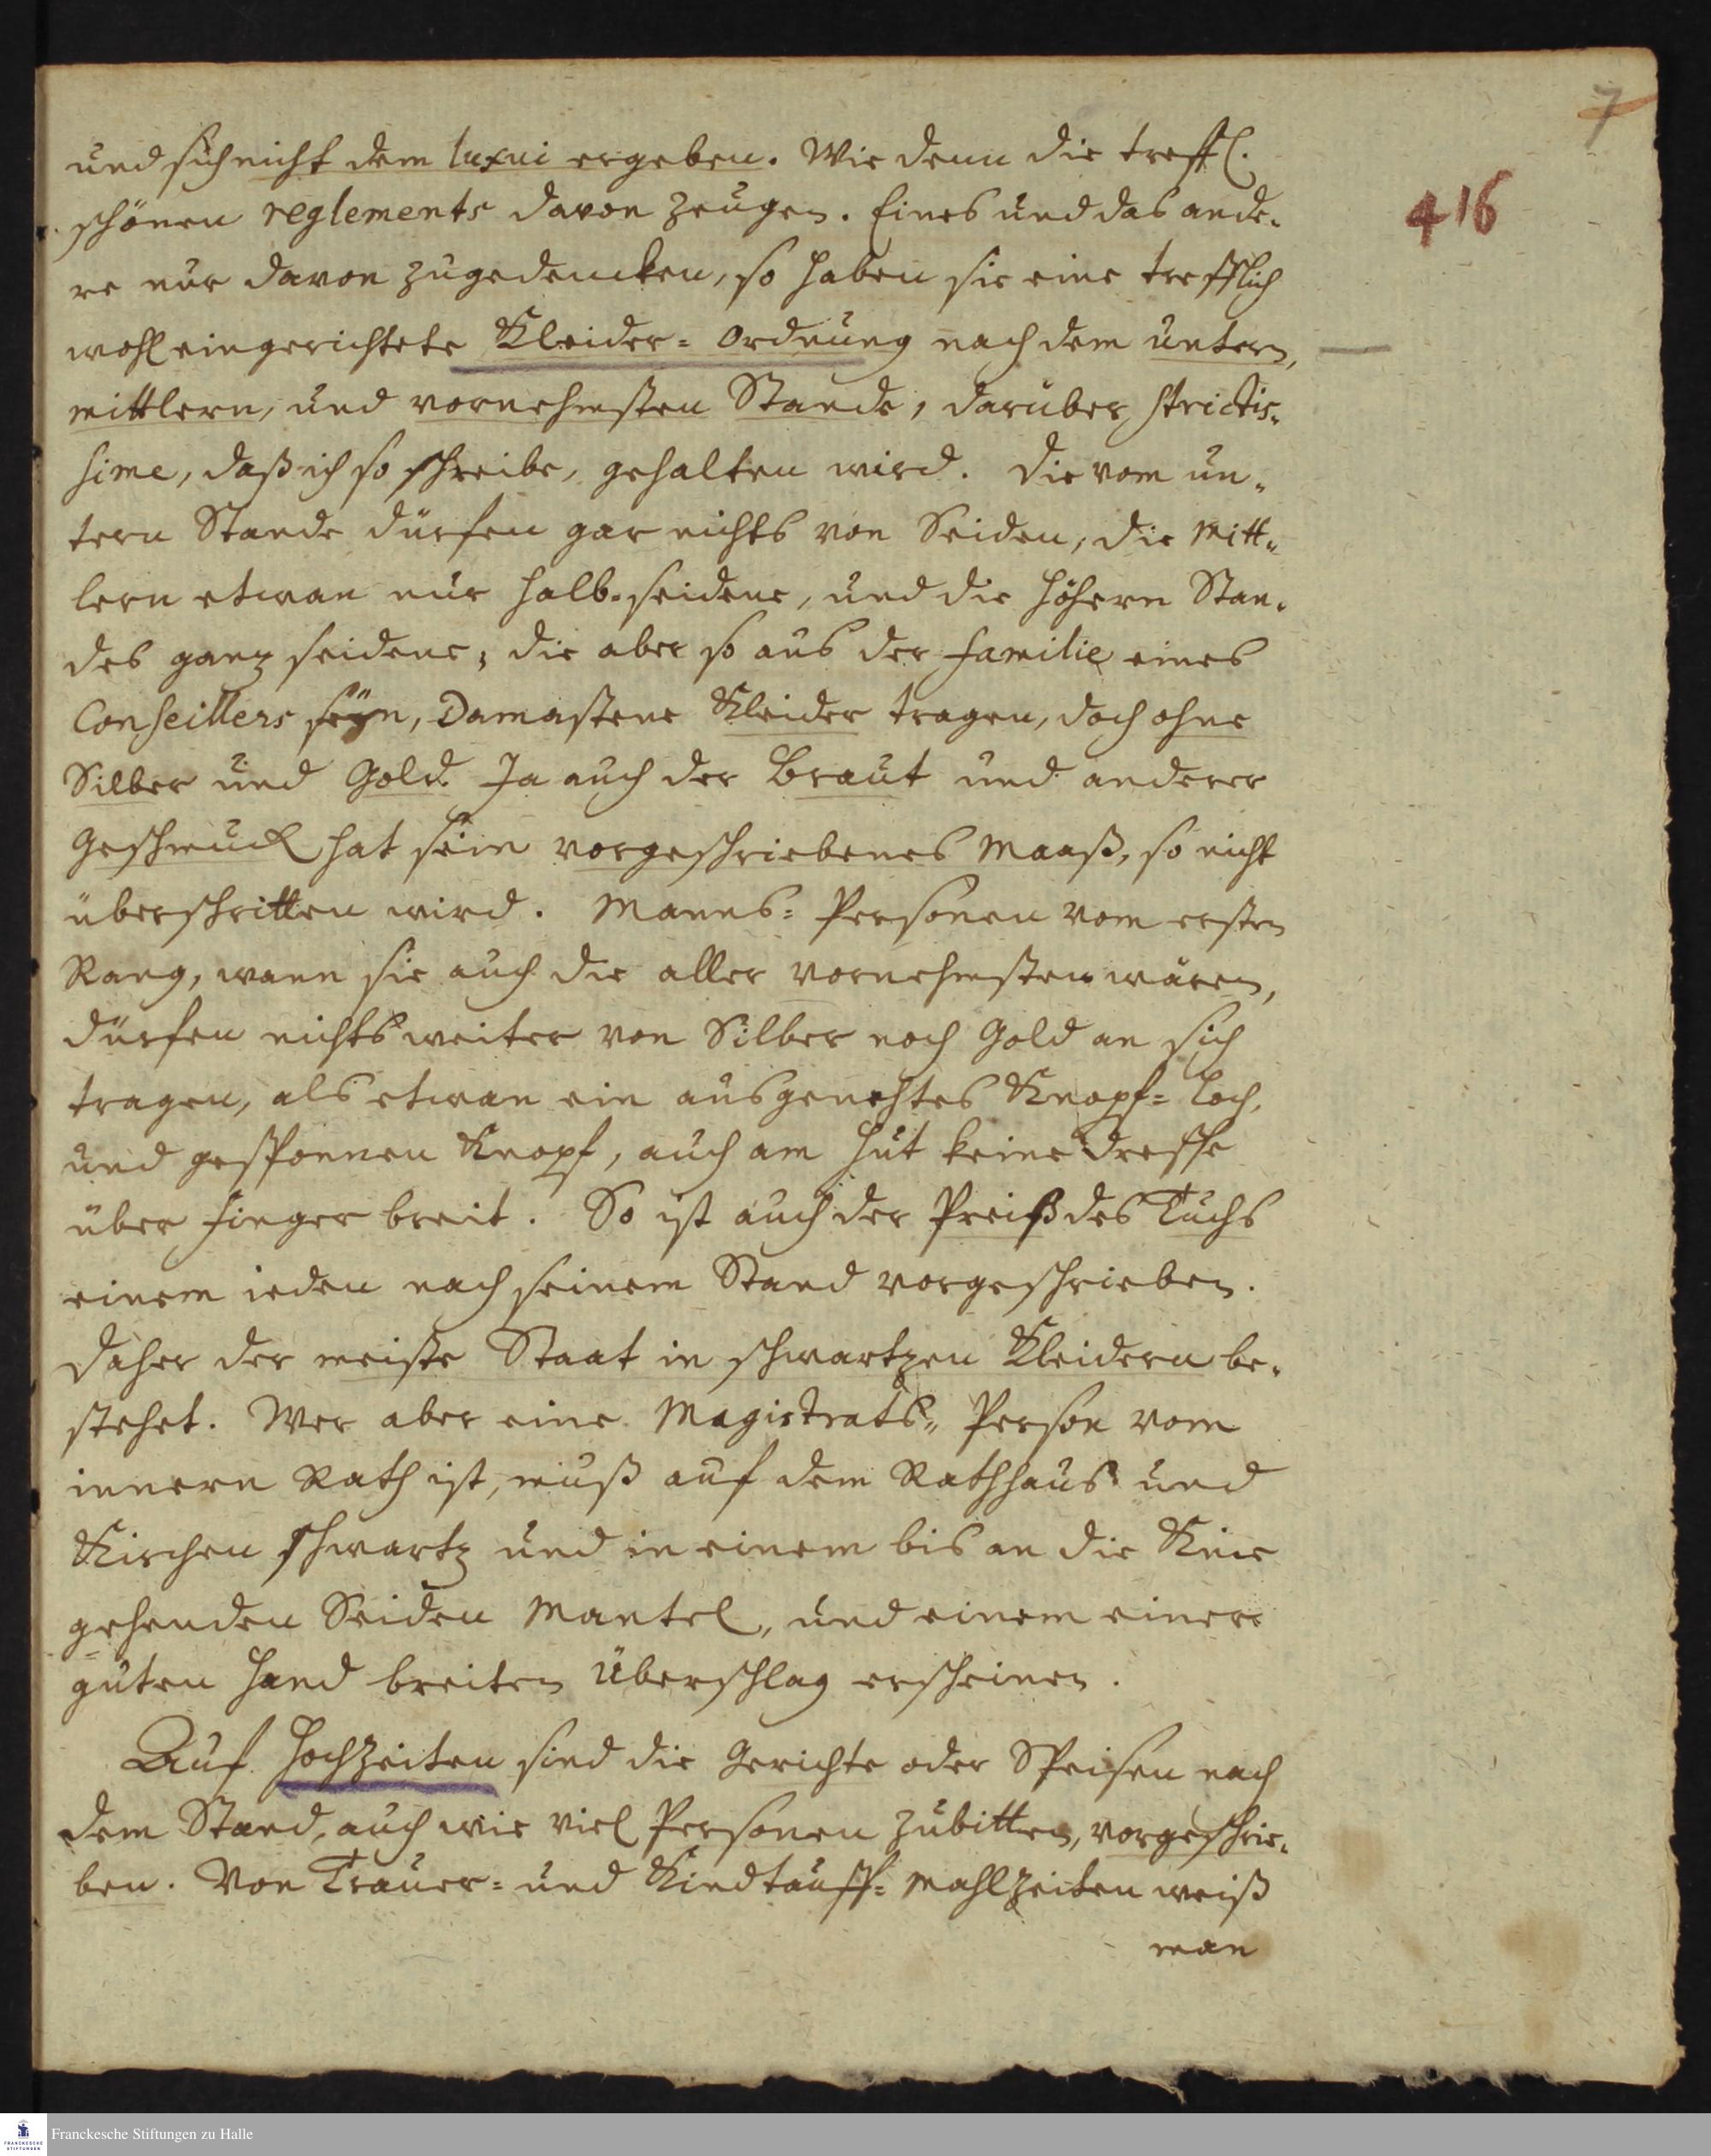 7
416
und sich nicht dem luxui ergeben. Wie denn die treffl.
schönen reglements davon zeugen. Eines und das ande-
re nur davon zugedencken, so haben sie eine trefflich
wohl eingerichtete Kleider= Ordnung nach dem untern,
mittlern, und vornehmsten Stande, darüber strictis-
sime, daß ich so schreibe, gehalten wird. Die vom un-
tern Stande dürfen gar nichts von Seiden, die Mitt-
lern etwan nur halb-seidene, und die höhern Stan-
des gantz seidene; die aber so aus der familie eines
Conseillers seyn, Damastene Kleider tragen, doch ohne
Silber und Gold. Ja auch der Braut und anderer
Geschmuck hat sein vorgeschriebenes Maaß, so nicht
überschritten wird. Manns= Personen vom ersten
Rang, wann sie auch die aller vornehmsten wären,
dürfen nichts weiter von Silber noch Gold an sich
tragen, als etwan ein ausgenehtes Knopf= Loch,
und gesponnen Knopf, auch am Hut keine Dresse
über Finger breit. So ist auch der Preiß des Tuchs
einem ieden nach seinem Stand vorgeschrieben.
Daher der meiste Staat in schwartzen Kleidern be-
stehet. Wer aber eine Magistrats= Person vom
innern Rath ist, muß auf dem Rathhaus und
Kirchen schwartz und in einem bis an die Knie
gehenden Seiden Mantel, und einem einer
guten Hand breiten Überschlag erscheinen.
Auf Hochzeiten sind die Gerichte oder Speisen nach
dem Stand, auch wie viel Personen zubitten, vorgeschrie-
ben. Von Trauer= und Kindtauff= Mahlzeiten weiß
man
Franckesche Stiftungen zu Halle